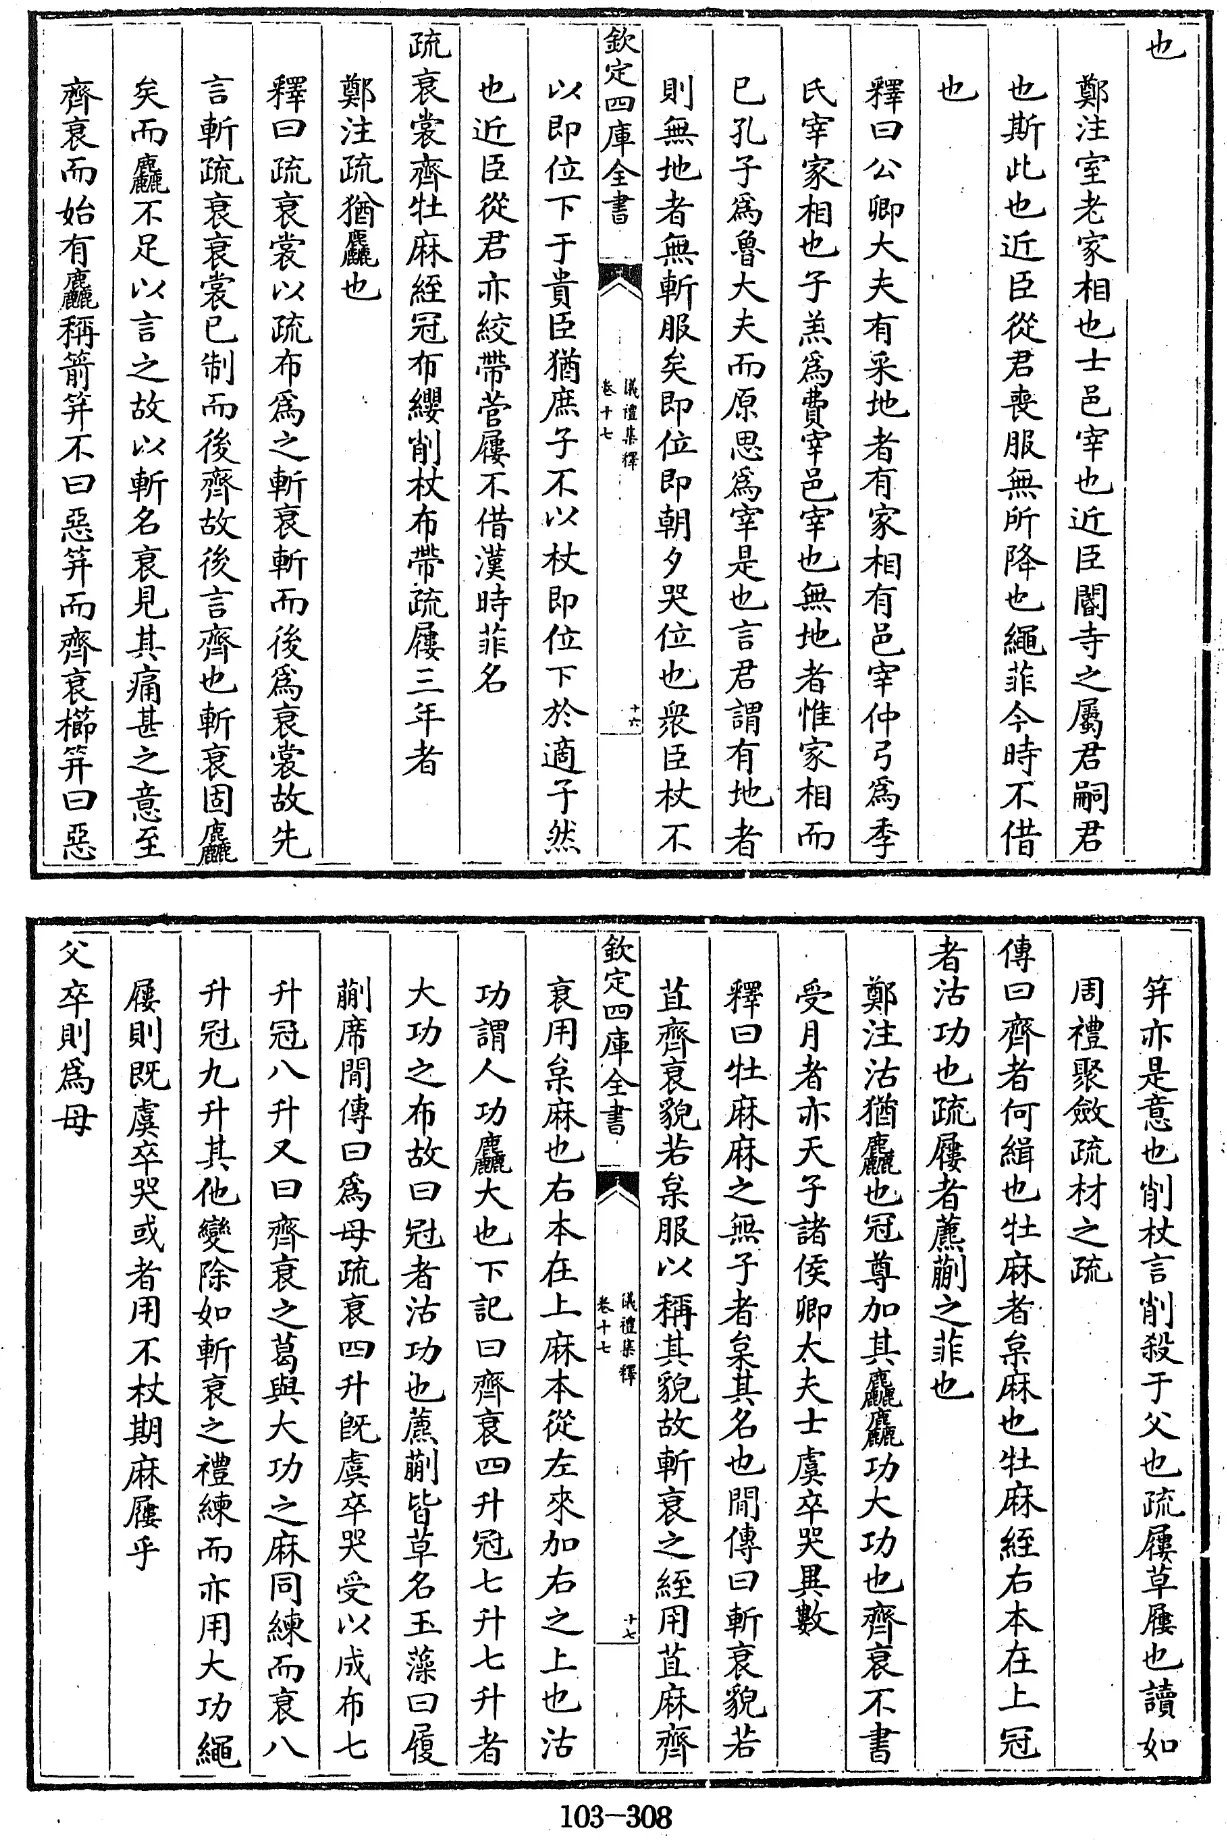 也
鄭注室老家相也士邑宰也近臣閽寺之屬君嗣君
也斯此也近臣從君喪服無所降也繩菲今時不借
也
釋曰公卿大夫有采地者有家相有邑宰仲弓爲季
氏宰家相也子羔爲費宰邑宰也無地者惟家相而
已孔子爲魯大夫而原思爲宰是也言君謂有地者
則無地者無斬服矣即位即朝夕哭位也衆臣杖不
欽定四庫全書
儀禮集釋
卷十七
十六
以即位下于貴臣猶庶子不以杖即位下於適子然
也近臣從君亦絞帶菅屨不借漢時菲名
疏衰裳齊牡麻絰冠布纓削杖布帶疏屨三年者
鄭注疏猶麤也
釋曰疏衰裳以疏布爲之斬衰斬而後爲衰裳故先
言斬疏衰衰裳已制而後齊故後言齊也斬衰固麤
矣而麤不足以言之故以斬名衰見其痛甚之意至
齊衰而始有麤稱箭笄不曰惡笄而齊衰櫛笄曰惡
笄亦是意也削杖言削殺于父也疏屨草屨也讀如
周禮聚斂疏材之疏
傳曰齊者何緝也牡麻者枲麻也牡麻絰右本在上冠
者沽功也疏屨者藨蒯之菲也
鄭注沽猶麤也冠尊加其麤麤功大功也齊衰不書
受月者亦天子諸侯卿大夫士虞卒哭異數
釋曰牡麻麻之無子者枲其名也閒傳曰斬衰貌若
苴齊衰貌若枲服以稱其貌故斬衰之絰用苴麻齊
欽定四庫全書
儀禮集釋
卷十七
十七
衰用枲麻也右本在上麻本從左來加右之上也沽
功謂人功麤大也下記曰齊衰四升冠七升七升者
大功之布故曰冠者沽功也藨蒯皆草名玉藻曰履
蒯席閒傳曰爲母疏衰四升旣虞卒哭受以成布七
升冠八升又曰齊衰之葛與大功之麻同練而衰八
升冠九升其他變除如斬衰之禮練而亦用大功繩
屨則既虞卒哭或者用不杖期麻屨乎
父卒則爲母
103-308